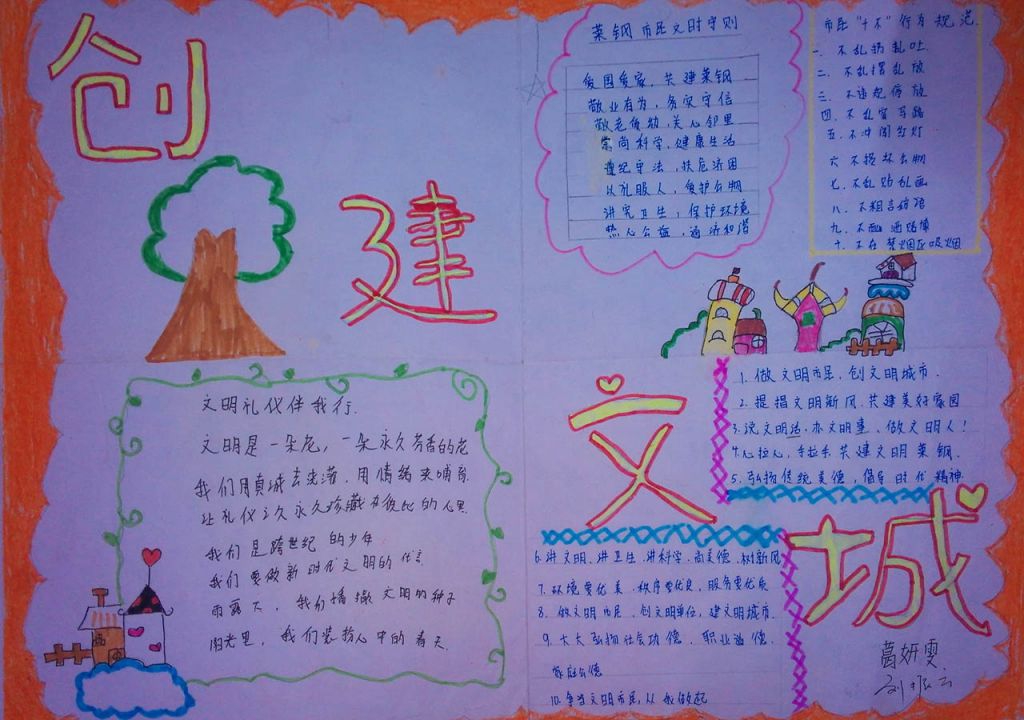 创
建
文
城
莱钢市民文明守则
爱国爱家，共建莱钢
敬业有为，务实守信
敬老爱幼，关心邻里
崇尚科学，健康生活
遵纪守法，扶危济困
以礼服人，爱护公物
讲究卫生，保护环境
热心公益，
市民"十不"行为规范
一、不乱扔乱吐
二、不乱摆乱放
三、不违规停放
四、不乱穿马路
五、不冲闯红灯
六、不损坏公物
七、不乱贴乱画
八、不粗言
九、不
十、不在禁烟区吸烟
文明礼仪伴我行
文明是一朵花，一朵永久芳香的花
我们用真诚去浇灌，用情绪来哺育
让礼仪之久永久珍藏在彼此的心里
我们是跨世纪的少年
我们要做新时代文明的代言
雨露下，我们播撒文明的种子
阳光里，我们装扮心中的春天
1. 做文明市民，创文明城市.
2. 提揩文明新风，共建美好家园
3. 说文明话、办文明事、做文明人！
4. 心拉心，手拉手，共建文明莱钢.
5. 弘扬传统美德，倡导时代精神.
6. 讲文明、讲卫生、讲科学、尚美德、树新风
7. 环境要优美、秩序要优良，服务要优质
8. 做文明市民，创文明单位，建文明城市.
9. 大大弘扬社会功德、职业道德、
家庭公德
10. 争当文明市民，从我做起
葛妍雯